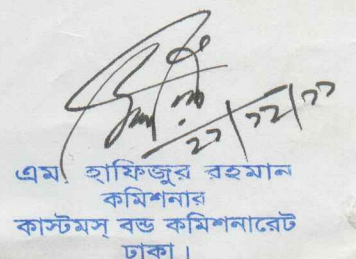 ২১/১২/১১
এম. হাফিজুর রহমান
কমিশনার
কাস্টমস্ বন্ড কমিশনারেট
ঢাকা।